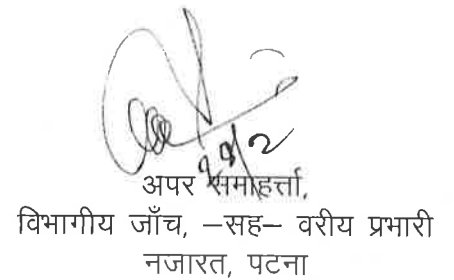 अपर समाहर्त्ता,
विभागीय जाँच, –सह– वरीय प्रभारी
नजारत, पटना